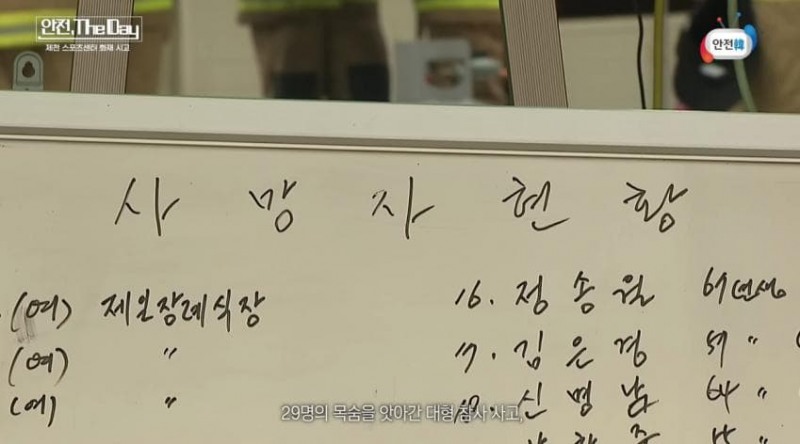 안전, The Day
제천 스포츠센터 화재 사고
안전韓
사망자현황
(여) 제일장례식장
(여) 〃
(여) 〃
16. 정송월 61년생
17. 김은경 59 〃
18. 신명남 64 〃
29명의 목숨을 앗아간 대형 참사 사고,